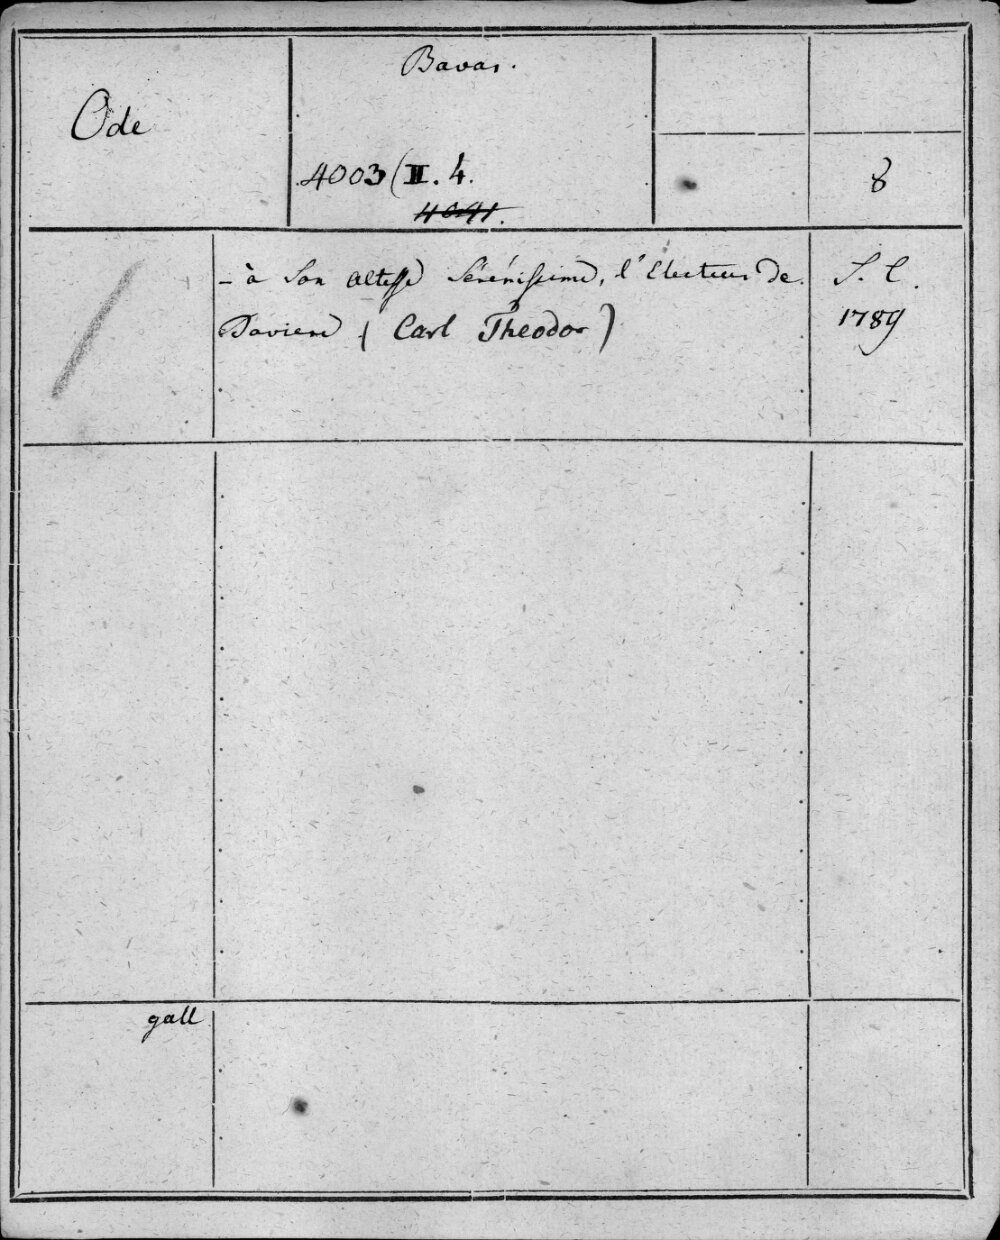 Bavar.
Ode
4003(II. 4.
4041.
8
- à Son Altesse Sérénissime, l'Electeur de
Baviere (Carl Theodor)
S. l.
1789
gall